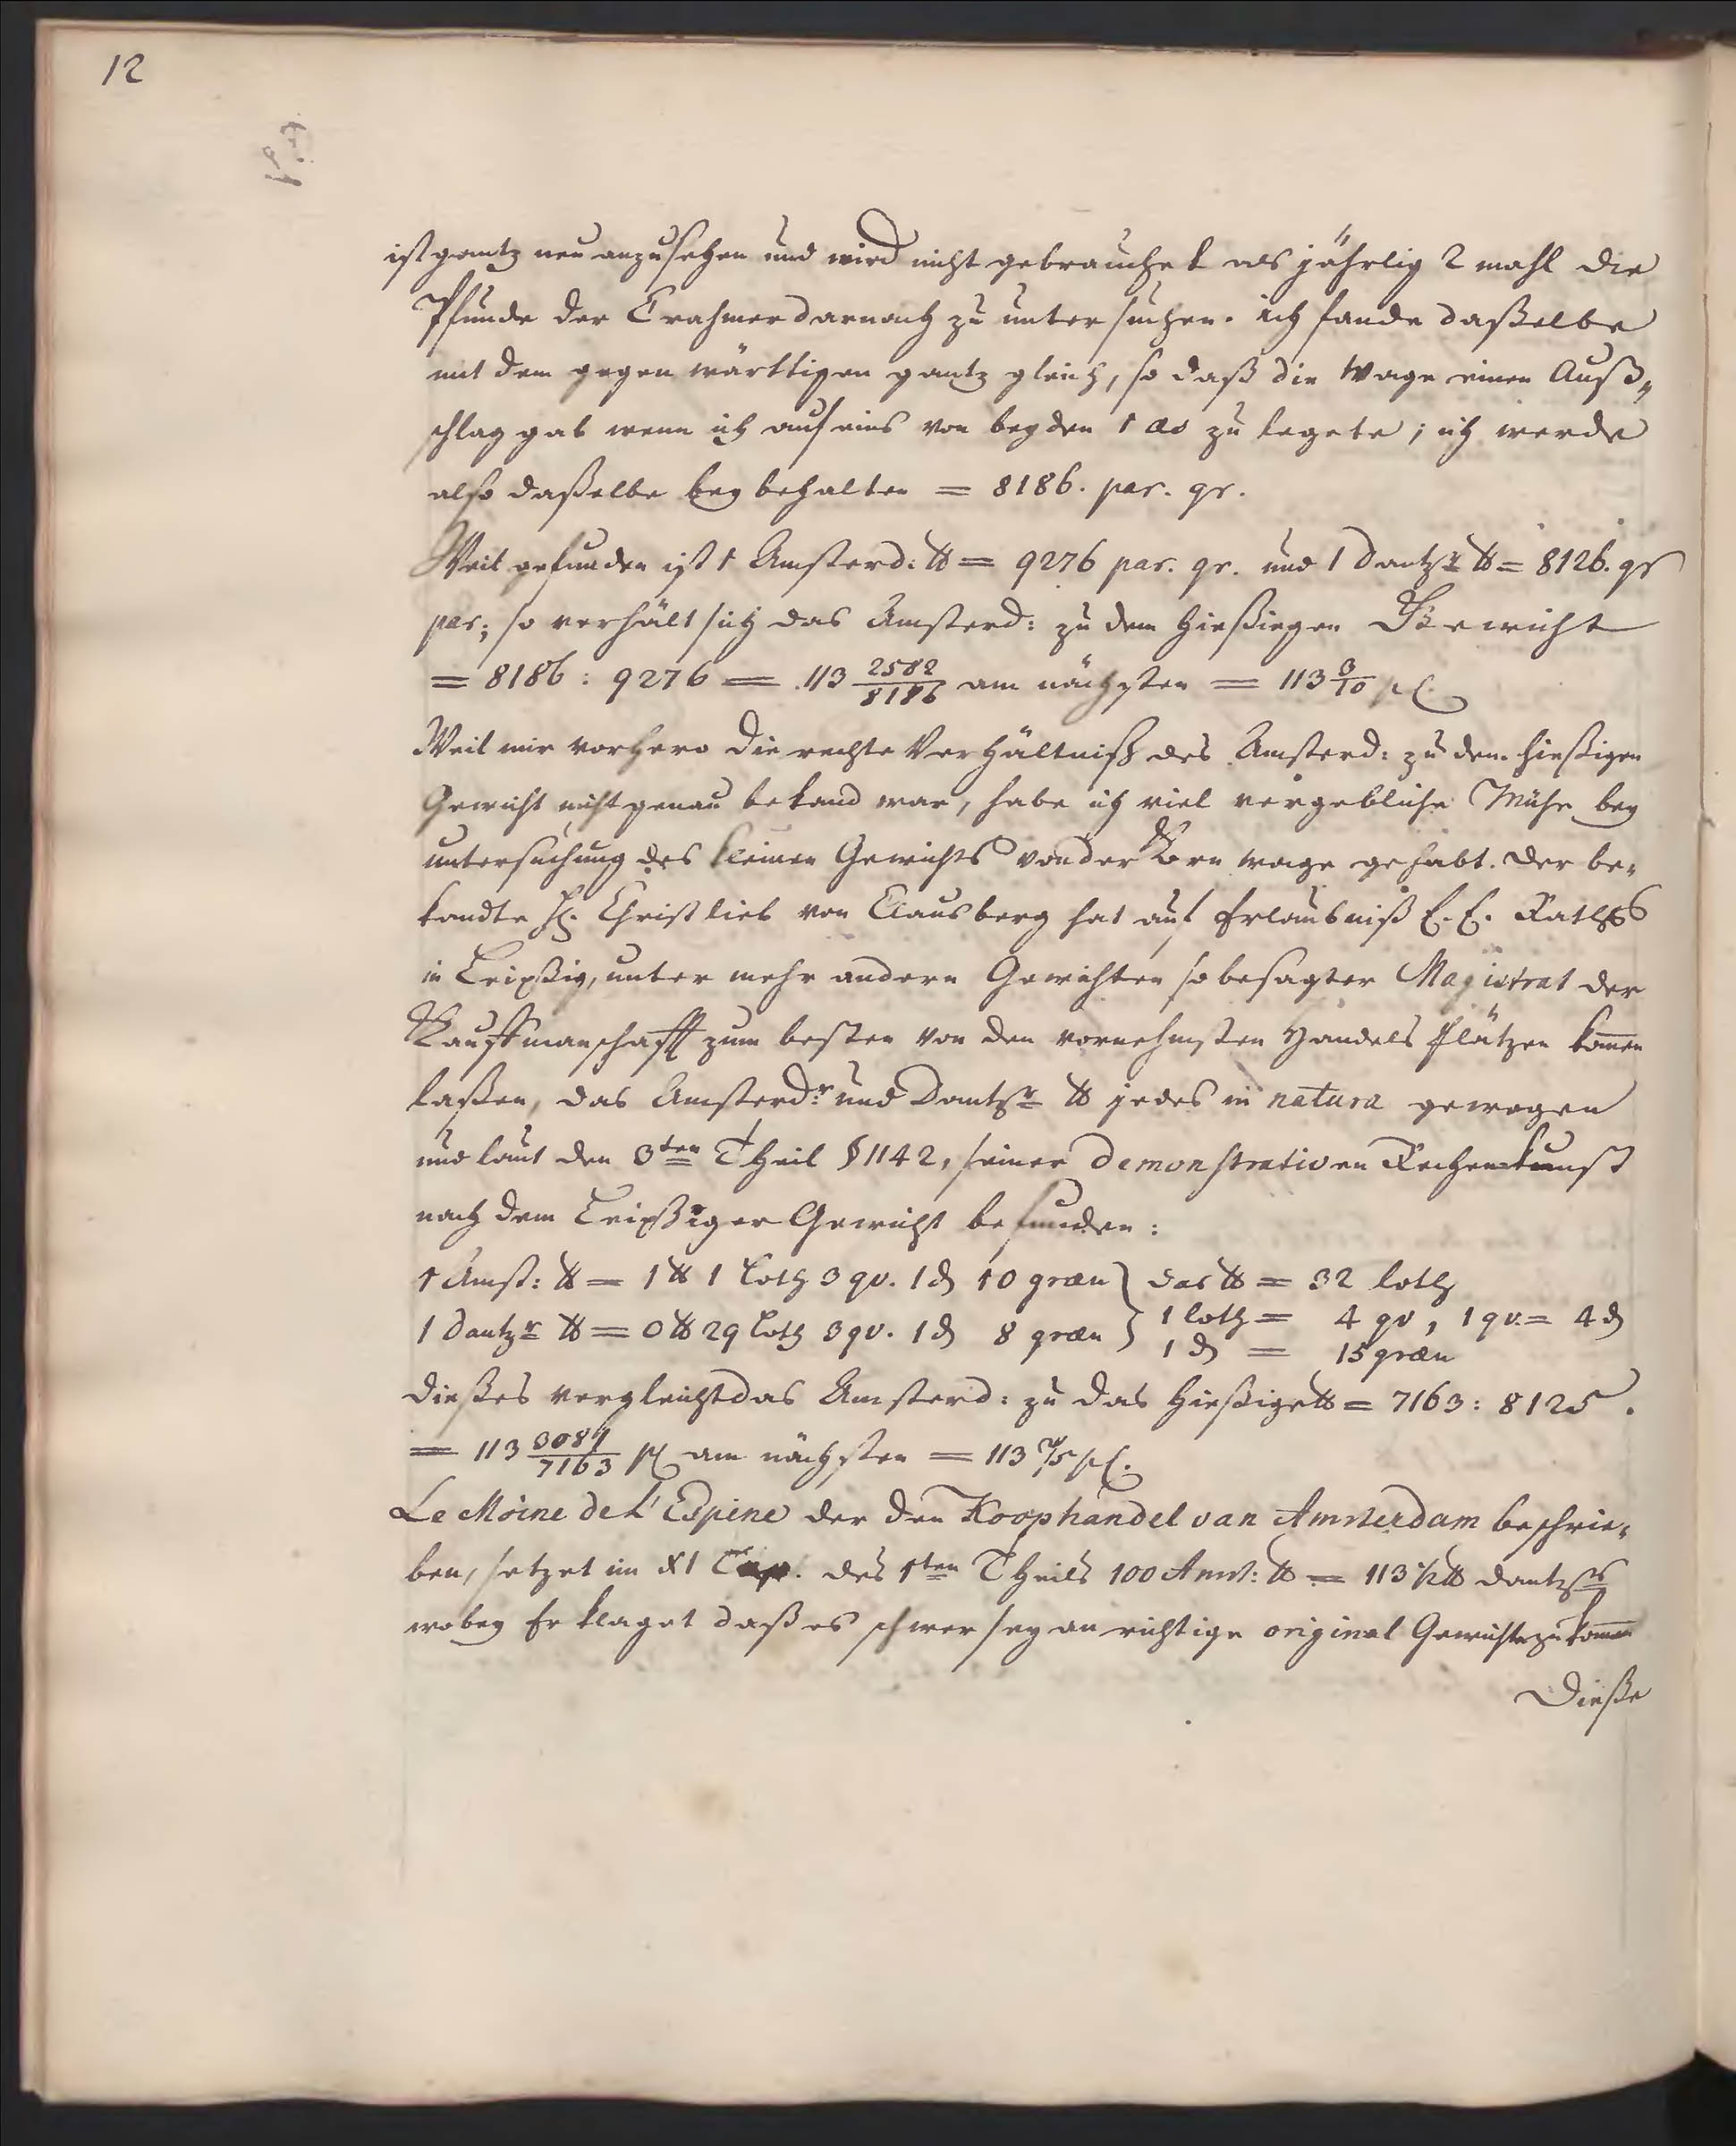 12
ist gantz neu anzusehen und wird nicht gebrauchet als jährlig 2 mahl die
Pfunde der Crahmer darnach zu untersuchen. ich fande daßelbe
mit dem gegenwärttigen gantz gleich, so daß die Wage einen Auß„
schlag gab wenn ich auf eins von beyden 1 as zu legete; ich werde
also daßelbe beybehalten = 8186. par. gr.
Weil gefunden ist 1 Amsterd: ℔ = 9276 par. gr. und 1 Dantzr ℔ = 8126. gr
par; so verhält sich das Amsterd: zu dem hießiegen Gewicht
= 8186 : 9276 = 113 2582/8186 am nächsten = 113 3/10 pC.
Weil mir vorhero die rechte Verhältniß des Amsterd: zu dem hießigen
Gewicht nicht genau bekand war, habe ich viel vergebliche Mühe bey
untersuchung des kleinen Gewichts von der Korn wage gehabt. der be„
kandte H. Christlieb von Clausberg hat auf Erlaubniß E. E. Raths
in Leipßig, unter mehr andern Gewichten so besagter Magistrat der
Kauffmanschafft zum besten von den vornehmsten Handels Plätzen komen
laßen, das Amsterdr: und Dantzr ℔ jedes in natura gewogen
und laut den 3ten Theil § 1142, seiner demonstrativen Rechenkunst
nach dem Leipßiger Gewicht befunden:
1 Amst: ℔ = 1 ℔ 1 Loth 3 qv. 1 ₰ 10 græn } das ℔ = 32 loth
1 loth = 4 qv, 1 qv. = 4 ₰
1 Dantzr ℔ = 0 ℔ 29 Loth 3 qv. 1 ₰ 8 græn } 1 ₰ = 15 græn
dießes vergleicht das Amsterd: zu das hießige ℔ = 7163 : 8125.
= 113 3081/7163 pC am nächsten = 113 2/5 pC.
Le Moine de L'Espine der den Koophandel van Amsterdam beschrie„
ben, setzet im XI Cap. des 1ten Theils 100 Amst: ℔ = 113 1/2 ℔ dantzr
wobey Er klaget daß es schwer sey an richtige original Gewichte zu komen
Dieße